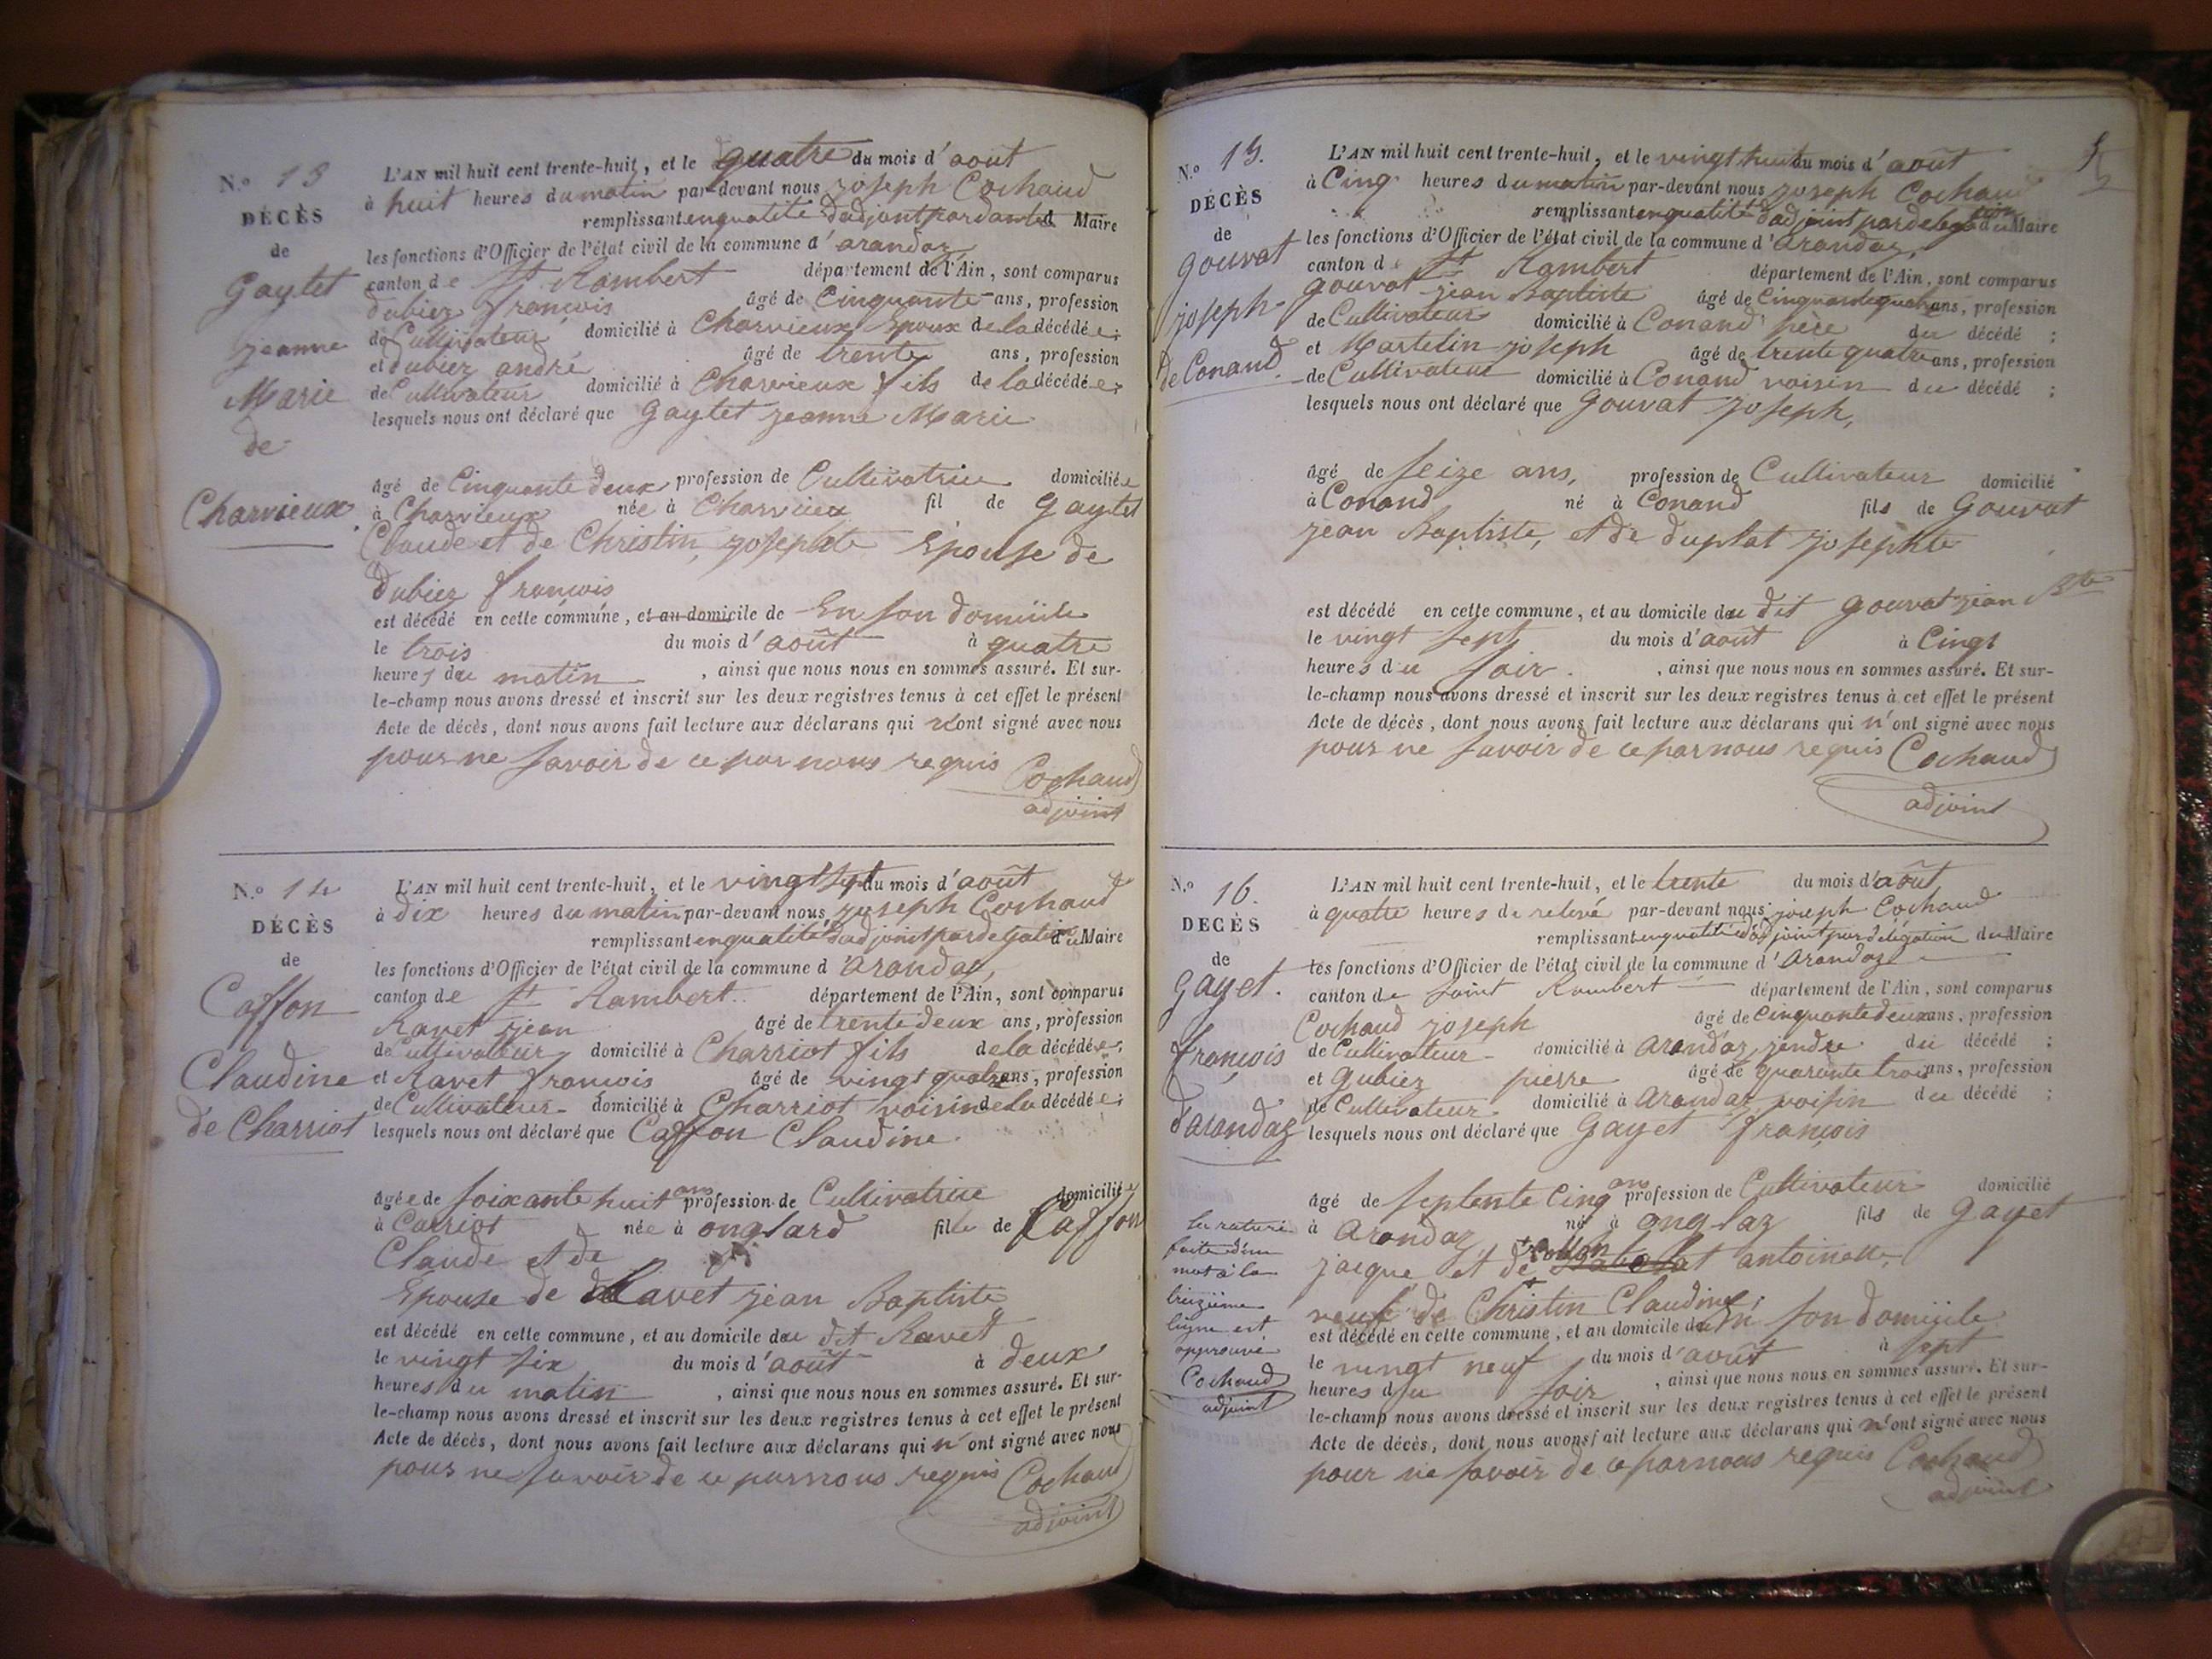 N.º 13
DÉCÈS
de
Gaytet
jeanne
Marie
de
Charvieux
L'AN mil huit cent trente-huit, et le quatre du mois d'août
à huit heures du matin par-devant nous joseph Cochaud
remplissant en qualité d'adjoint par Maire
les fonctions d'Officier de l'état civil de la commune d'arandaz
canton de St Rambert département de l'Ain, sont comparus
dubiez françois âgé de Cinquante ans, profession
de Cultivateur domicilié à Charvieux Epoux de la décédée;
et dubiez andré âgé de trente ans, profession
de Cultivateur domicilié à Charvieux fils de la décédée;
lesquels nous ont déclaré que Gaytet jeanne Marie
âgé de Cinquante deux profession de Cultivatrice domiciliée
à Charvieux née à Charvieux fil de Gaytet
Claude et de Christin josephte Epouse de
dubiez françois
est décédé en cette commune, et au domicile de En son domicile
le trois du mois d'août à quatre
heures du matin, ainsi que nous nous en sommes assuré. Et sur-
le-champ nous avons dressé et inscrit sur les deux registres tenus à cet effet le présent
Acte de décès, dont nous avons fait lecture aux déclarans qui n'ont signé avec nous
pour ne savoir de ce par nous requis Cochaud
adjoint
N.º 14
DÉCÈS
de
Caffon
Claudine
de Charriot
L'AN mil huit cent trente-huit, et le vingt sept du mois d'août
à dix heures du matin par-devant nous joseph Cochaud
remplissant en qualité d'adjoint par délégation du Maire
les fonctions d'Officier de l'état civil de la commune d'arandaz
canton de St Rambert département de l'Ain, sont comparus
Ravet jean âgé de trente deux ans, profession
de Cultivateur domicilié à Charriot fils de la décédée;
et Ravet françois âgé de vingt quatre ans, profession
de Cultivateur domicilié à Charriot voisin de la décédée;
lesquels nous ont déclaré que Caffon Claudine
âgée de soixante huit ans profession de Cultivatrice domicilié
à Carriot née à onglard fille de Caffon
Claude et de
Epouse de Ravet jean Baptiste
est décédé en cette commune, et au domicile du dit Ravet
le vingt six du mois d'août à deux
heures du matin, ainsi que nous nous en sommes assuré. Et sur-
le-champ nous avons dressé et inscrit sur les deux registres tenus à cet effet le présent
Acte de décès, dont nous avons fait lecture aux déclarans qui n'ont signé avec nous
pour ne savoir de ce par nous requis Cochaud
adjoint
N.º 15.
DÉCÈS
de
gouvat
joseph
de Conand.
L'AN mil huit cent trente-huit, et le vingt huit du mois d'août
à Cinq heures du matin par-devant nous joseph Cochaud
remplissant en qualité d'adjoint par délégation du Maire
les fonctions d'Officier de l'état civil de la commune d'arandaz,
canton de St Rambert département de l'Ain, sont comparus
gouvat jean Baptiste âgé de Cinquante quatre ans, profession
de Cultivateur domicilié à Conand père du décédé;
et Martelin joseph âgé de trente quatre ans, profession
de Cultivateur domicilié à Conand voisin du décédé;
lesquels nous ont déclaré que gouvat joseph,
âgé de seize ans, profession de Cultivateur domicilié
à Conand né à Conand fils de Gouvat
jean Baptiste, et de duplat josephte
est décédé en cette commune, et au domicile du dit gouvat jean Bte
le vingt sept du mois d'août à Cinq
heures du soir., ainsi que nous nous en sommes assuré. Et sur-
le-champ nous avons dressé et inscrit sur les deux registres tenus à cet effet le présent
Acte de décès, dont nous avons fait lecture aux déclarans qui n'ont signé avec nous
pour ne savoir de ce par nous requis Cochaud
adjoint
N.º 16.
DECÈS
de
Gayet.
françois
d'arandaz
L'AN mil huit cent trente-huit, et le trente du mois d'août
à quatre heures de relevé par-devant nous joseph Cochaud
remplissant en qualité d'adjoint par délégation du Maire
les fonctions d'Officier de l'état civil de la commune d'arandaz
canton de saint Rambert département de l'Ain, sont comparus
Cochaud joseph âgé de Cinquante deux ans, profession
de Cultivateur domicilié à arandaz jendre du décédé;
et gubiez pierre âgé de quarante trois ans, profession
de Cultivateur domicilié à arandaz voisin du décédé;
lesquels nous ont déclaré que Gayet françois
âgé de septente Cinq ans profession de Cultivateur domicilié
à arandaz né à onglaz fils de gayet
jacque et de antoinette,
veuf de Christin Claudine;
est décédé en cette commune, et au domicile du En son domicile
le vingt neuf du mois d'août à sept
heures du soir, ainsi que nous nous en sommes assuré. Et sur-
le-champ nous avons dressé et inscrit sur les deux registres tenus à cet effet le présent
Acte de décès, dont nous avons fait lecture aux déclarans qui n'ont signé avec nous
pour ne savoir de ce par nous requis Cochaud
adjoint
La rature
faite d'un
mot à la
treizième
ligne est
approuvé
Cochaud
adjoint